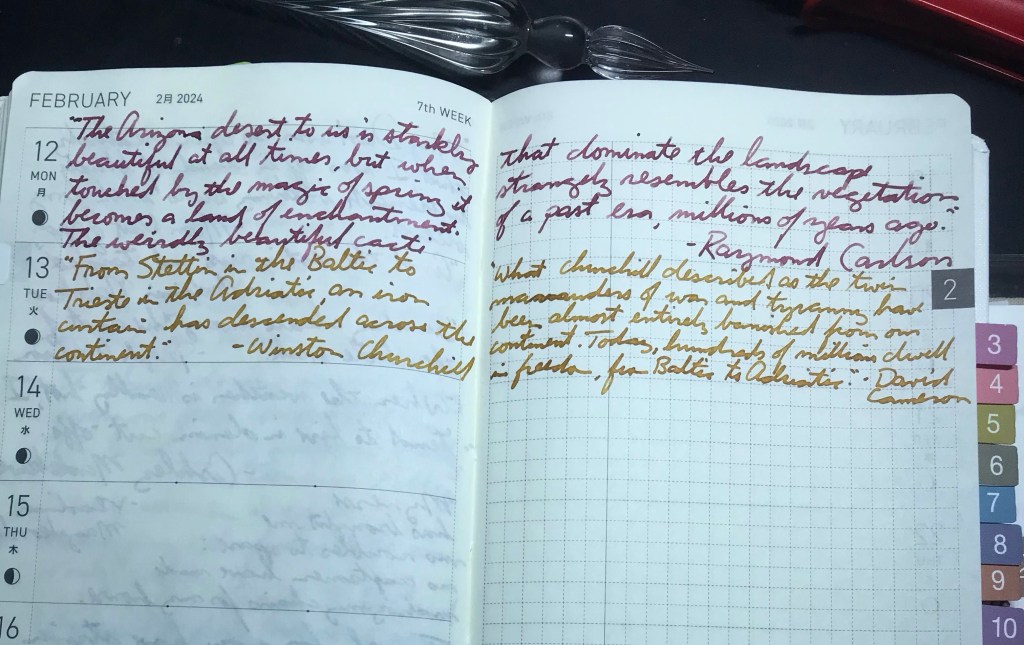 FEBRUARY 2月 2024
7th WEEK
12
MON
月
"The Arizona desert to us is starkly
beautiful at all times, but when
touched by the magic of spring it
becomes a land of enchantment.
The weirdly beautiful cacti
13
TUE
火
"From Stettin in the Baltic to
Trieste in the Adriatic, an iron
curtain has descended across the
continent." -Winston Churchill
14
WED
水
15
THU
木
16
that dominate the landscape
strangely resembles the vegetation
of a past era, millions of years ago."
-Raymond Carlson
"What Churchill described as the twin
of war and tyranny have
been almost entirely banished from our
continent. Today, hundreds of millions dwell
in freedom, from Baltic to Adriatic." -David
Cameron
2
3
4
5
6
7
8
9
10